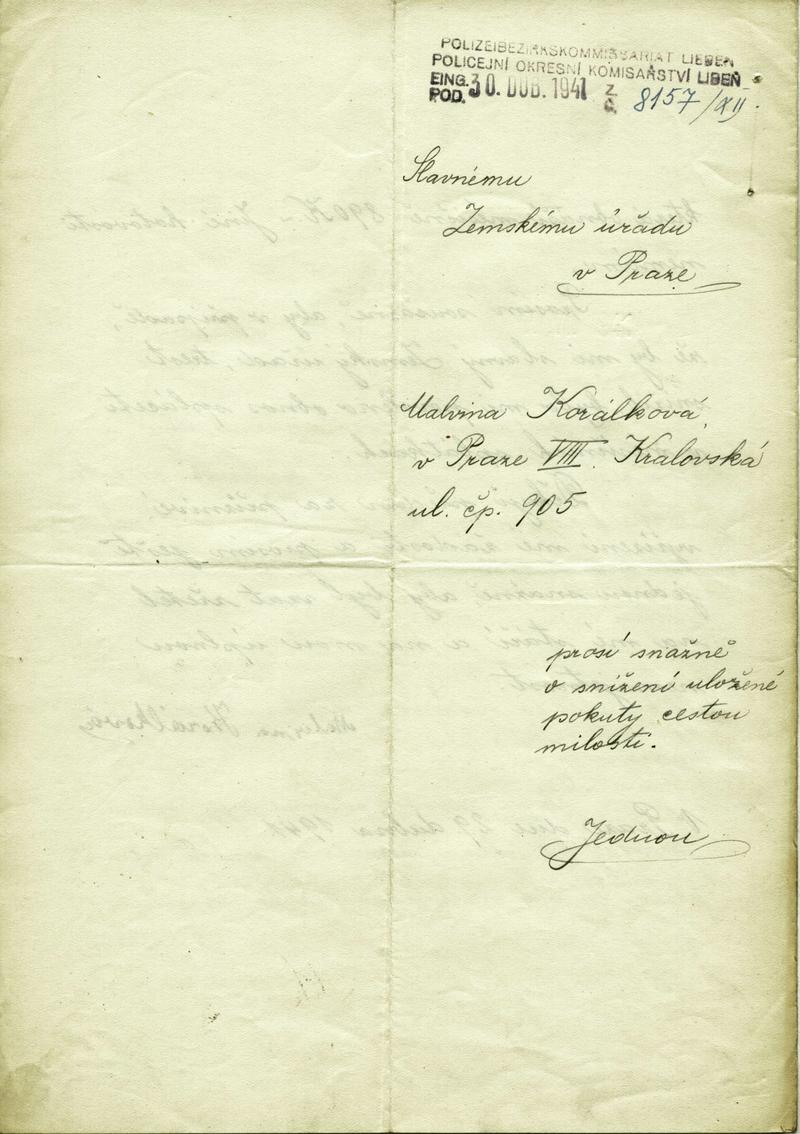 POLIZEIBEZIRKSKOMMISSARIAT LIEBEN
POLICEJNÍ OKRESNÍ KOMISAŘSTVÍ LIBEŇ
EING. 30. DUB. 1941 Z.
POD. Č. 8157/XII.
Slavnému
Zemskému úřadu
v Praze
Malvina Korálková,
v Praze VIII. Kralovská
ul. čp. 905
prosí snažně
o snížení uložené
pokuty cestou
milosti.
Jednou